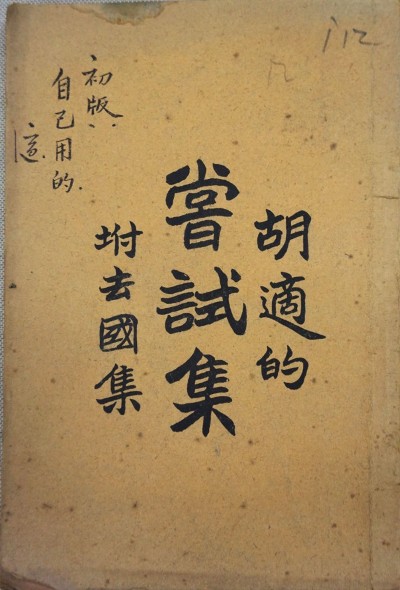 胡適的
嘗試集
坿去國集
初版,
自己用的.
適.
112